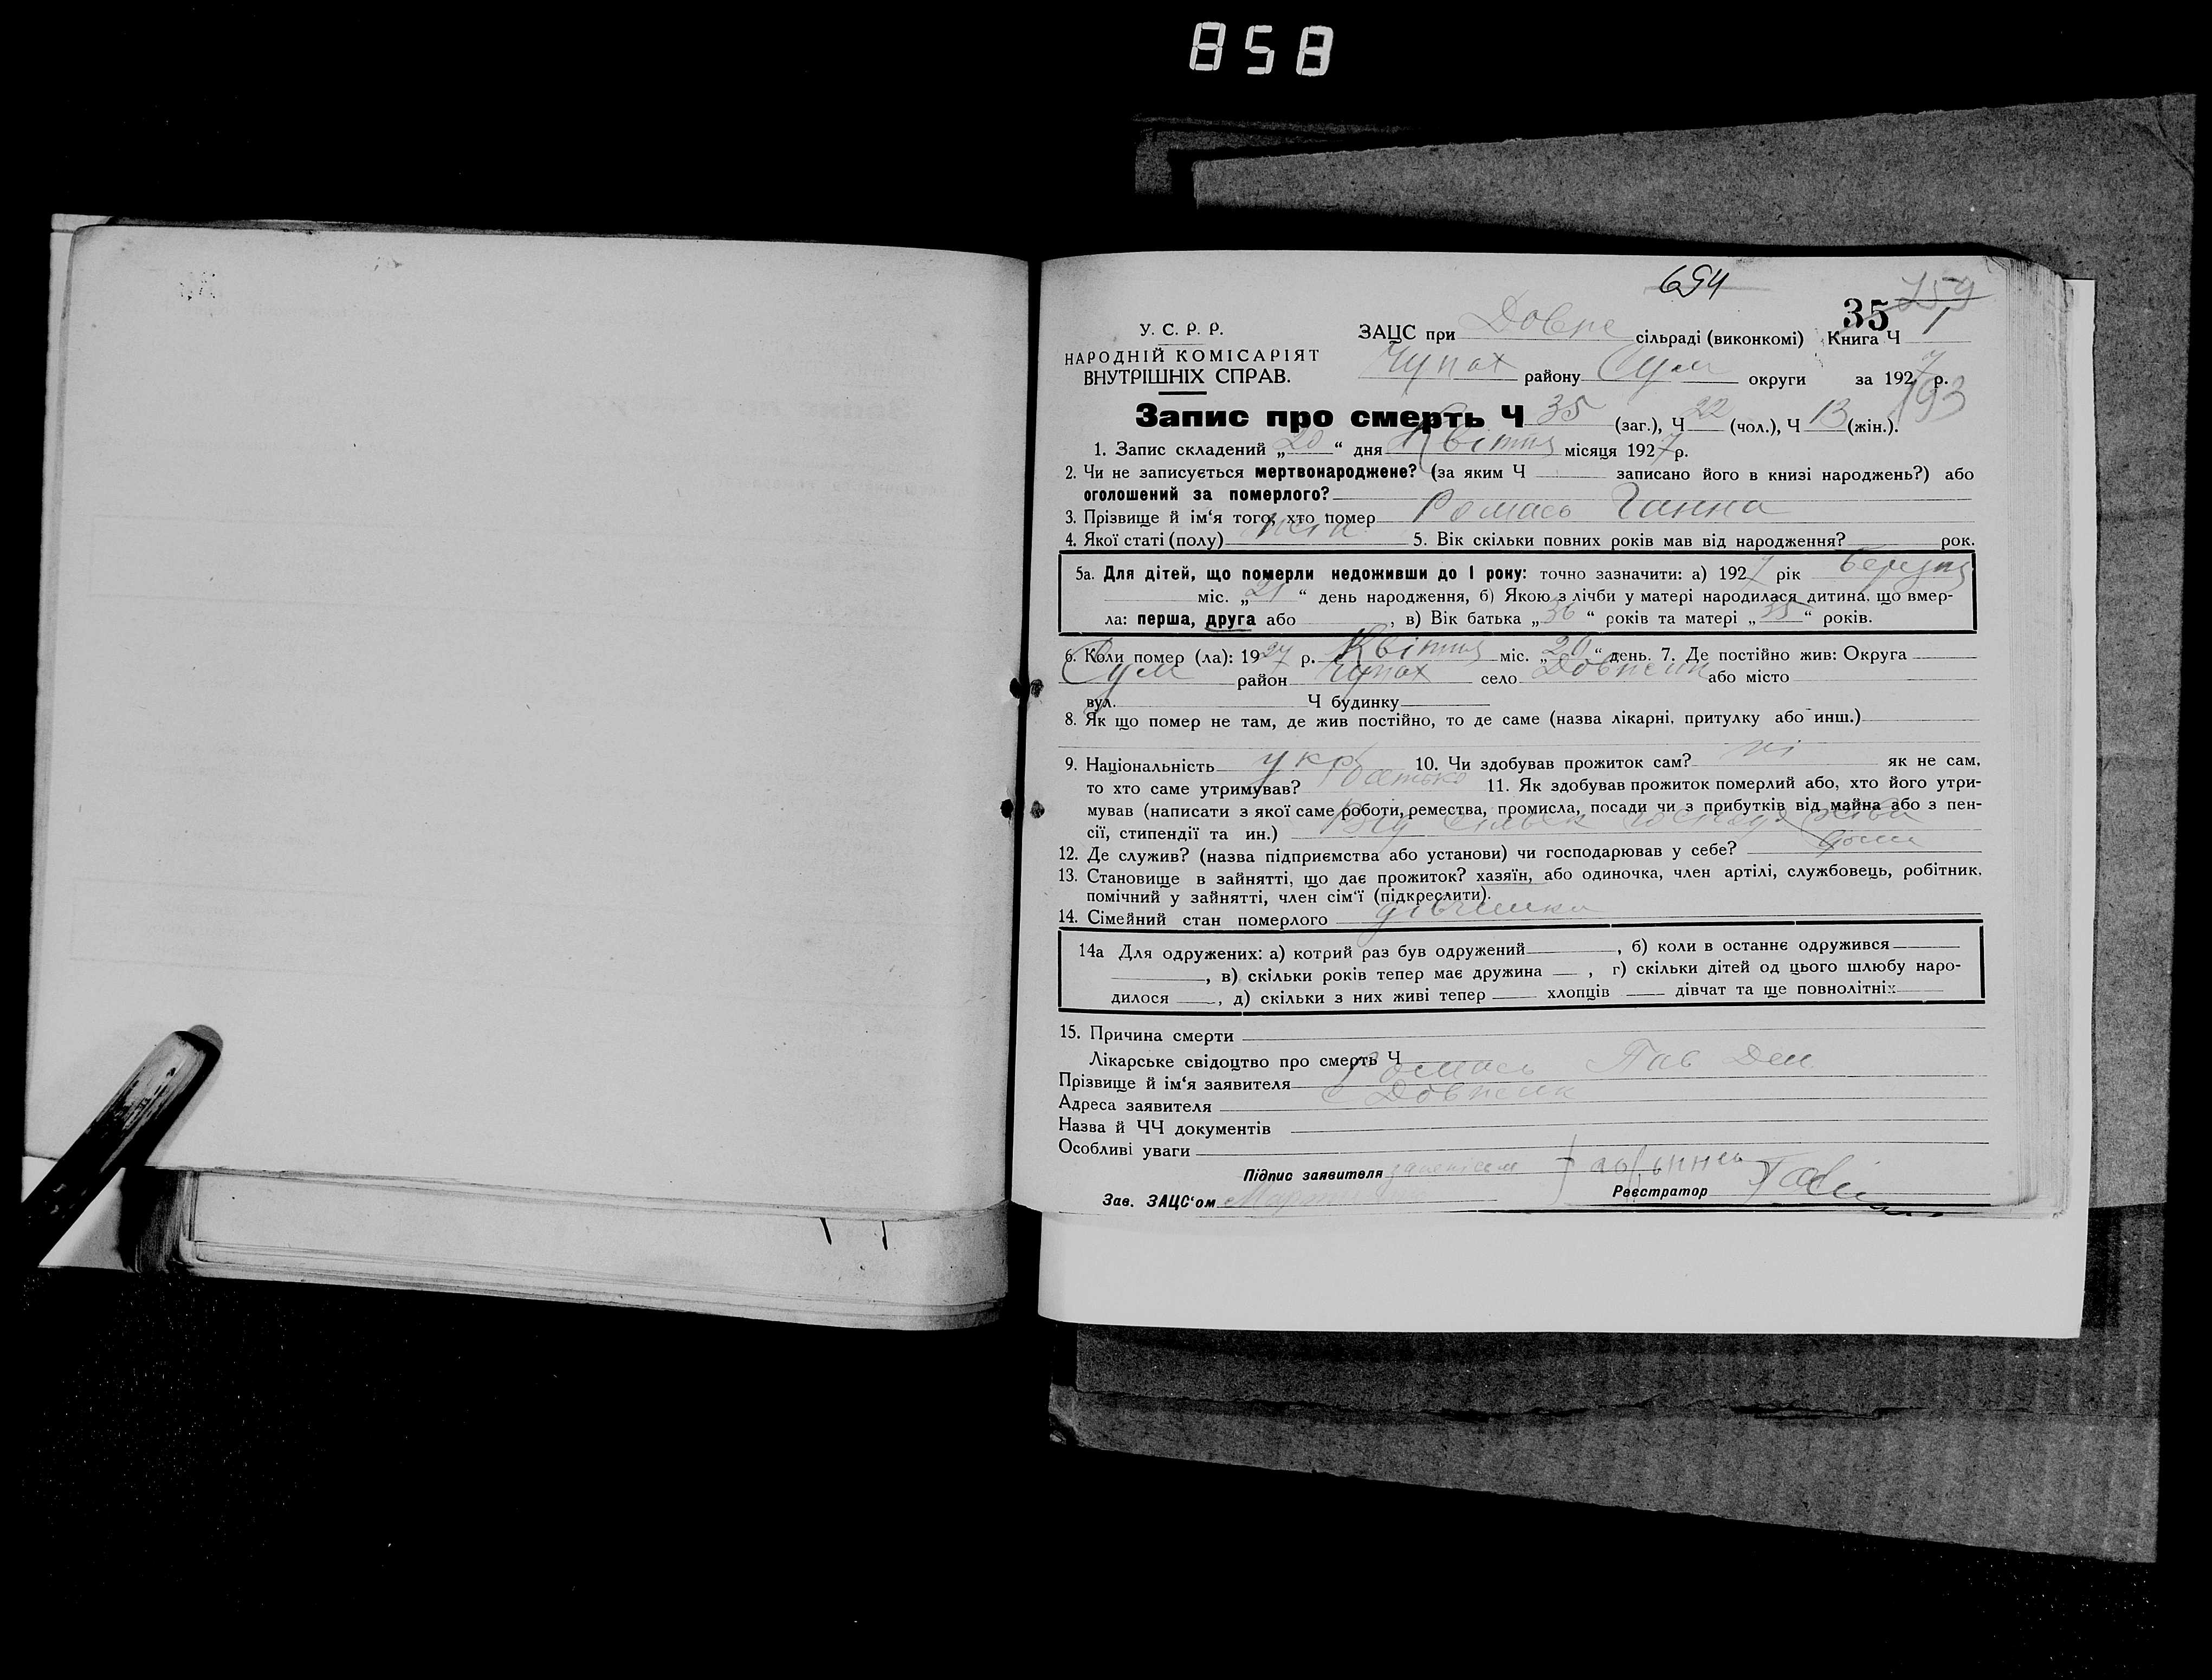 858
694
759
35
У. С. Р. Р. ЗАЦС при Довже сільраді (виконкомі) Книга Ч 1
НАРОДНІЙ КОМІСАРІЯТ
ВНУТРІШНІХ СПРАВ.
Чупах району Сум округи за 1927 р.
193
Запис про смерть Ч 35 (заг.), Ч 22 (чол.), Ч 13 (жін.).
1. Запис складений „20“ дня Квітня місяця 1927 р.
2. Чи не записується мертвонароджене? (за яким Ч записано його в книзі народжень?) або
оголошений за померлого?
3. Прізвище й ім‘я того, хто помер Ромась Ганна
4. Якої статі (полу) жін 5. Вік скільки повних років мав від народження? рок.
5а. Для дітей, що померли недоживши до 1 року: точно зазначити: а) 1927 рік березня
міс. „21“ день народження, б) Якою з лічби у матері народилася дитина, що вмер-
ла: перша, друга або , в) Вік батька „36“ років та матері „35“ років.
6. Коли помер (ла): 1927 р. Квітня міс. „20“ день. 7. Де постійно жив: Округа
Сум район Чупах село або місто
вул. Ч будинку
8. Як що помер не там, де жив постійно, то де саме (назва лікарні, притулку або инш.)
9. Національність укр 10. Чи здобував прожиток сам? ні як не сам,
то хто саме утримував? батько 11. Як здобував прожиток померлий або, хто його утри-
мував (написати з якої саме роботи, ремества, промисла, посади чи з прибутків від майна або з пен-
сії, стипендії та ин.) Від сільськ господарства
12. Де служив? (назва підприємства або установи) чи господарював у себе? дома
13. Становище в зайнятті, що дає прожиток? хазяїн, або одиночка, член артілі, службовець, робітник,
помічний у зайнятті, член сім‘ї (підкреслити).
14. Сімейний стан померлого дівчинка
14а Для одружених: а) котрий раз був одружений , б) коли в останнє одружився
, в) скільки років тепер має дружина , г) скільки дітей од цього шлюбу наро-
дилося , д) скільки з них живі тепер хлопців дівчат та ще повнолітніх
15. Причина смерти
Лікарське свідоцтво про смерть Ч
Прізвище й ім‘я заявителя Ромась Пав Дем
Адреса заявителя
Назва й ЧЧ документів
Особливі уваги
Підпис заявителя
Зав. ЗАЦС‘ом Реєстратор